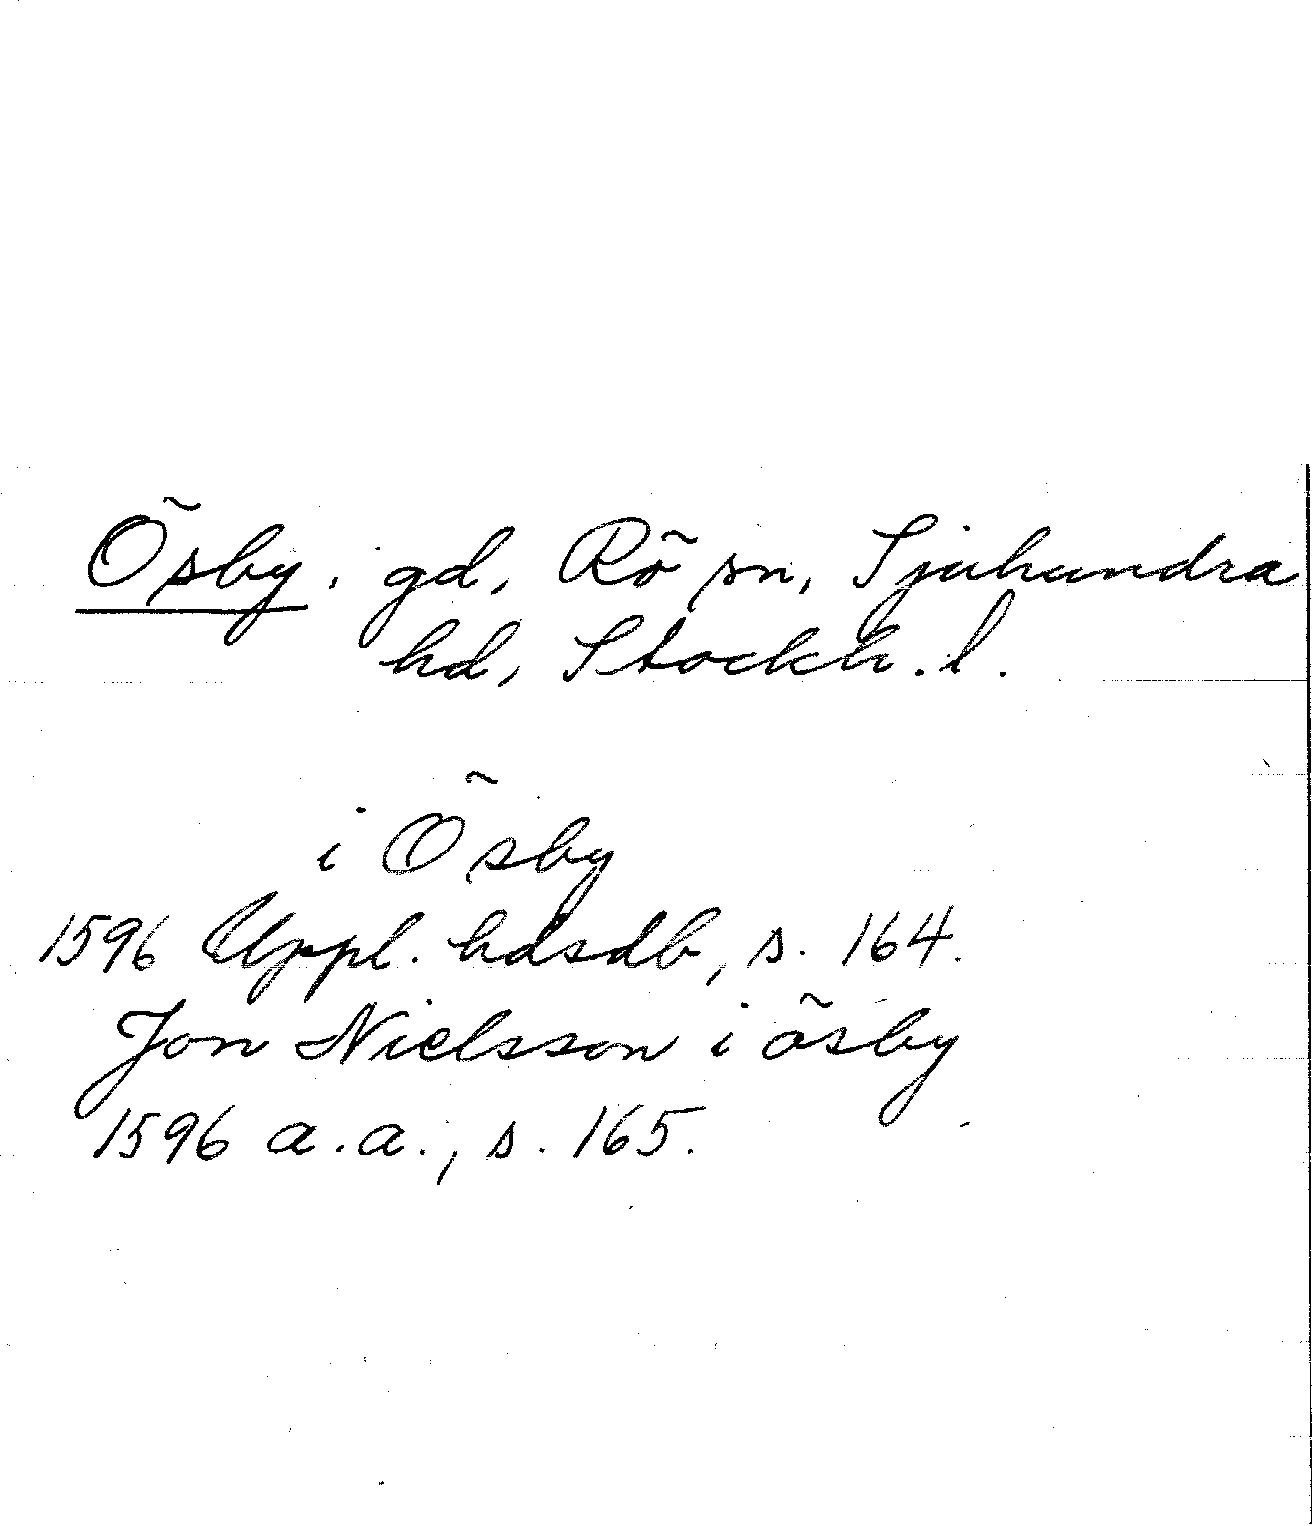 Ösby, gd, Rö sn, Sjuhundra
hd, Stockh. l.
i Ösby
1596 Uppl. hdsdb, s. 164.
Jon Nielsson i ösby
1596 a.a., s. 165.